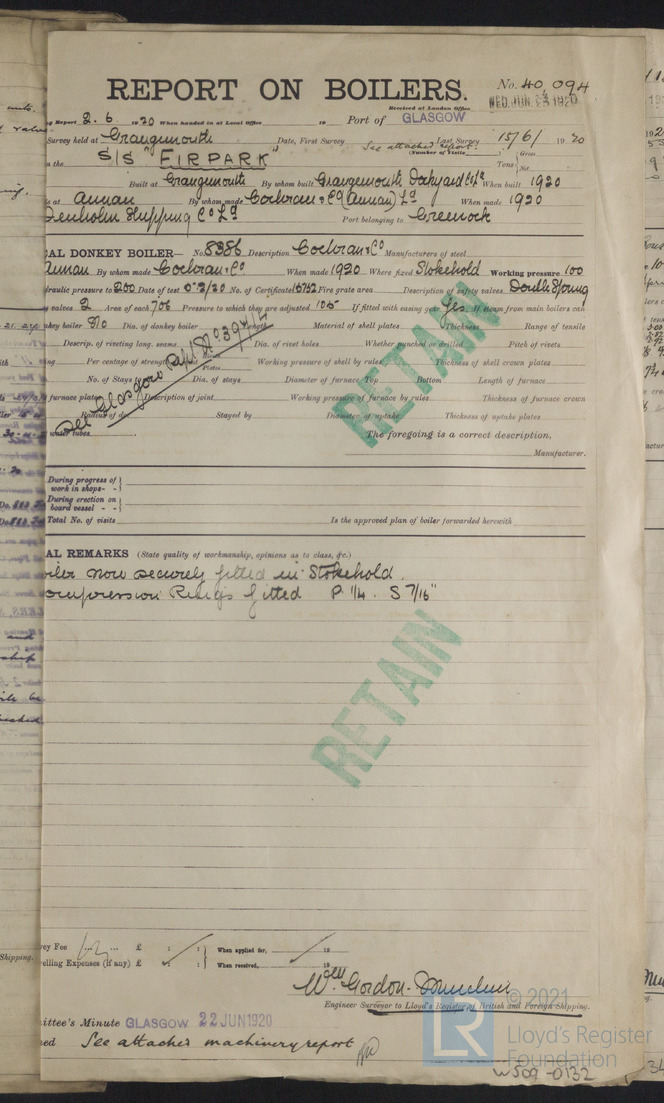 REPORT ON BOILERS.
No. 40,094
Received at London Office
WED. JUN. 23 1920
Report 2. 6. 1920 When handed in at Local Office 19 Port of GLASGOW
Survey held at Grangemouth Date, First Survey See attached report. Last Survey 15/6/ 1920
(Number of Visits
the S/S "FIRPARK" Tons { Gross
Net
Built at Grangemouth By whom built Grangemouth Dockyard Co Ld When built 1920
at Annan By whom made Cochran & Co (Annan) Ld When made 1920
Denholm Shipping Co Ld Port belonging to Greenock
AL DONKEY BOILER— No. 8386 Description Cochran & Co Manufacturers of steel
Annan By whom made Cochran & Co When made 1920 Where fixed Stokehold Working pressure 100
raulic pressure to 200 Date of test No. of Certificate 15752 Fire grate area Description of safety valves Double Spring
valves 2 Area of each 7.06 Pressure to which they are adjusted 105 If fitted with easing gear Yes If steam from main boilers can
nkey boiler No Dia. of donkey boiler Length Material of shell plates Thickness Range of tensile
Descrip. of riveting long. seams Dia. of rivet holes Whether punched or drilled Pitch of rivets
Per centage of strength Plates Working pressure of shell by rules Thickness of shell crown plates
No. of Stays to Dia. of stays Diameter of furnace Top Bottom Length of furnace
furnace plates Description of joint Working pressure of furnace by rules Thickness of furnace crown
Radius of do. Stayed by Diameter of uptake Thickness of uptake plates
water tubes
See Glasgow Rpt No 39717
RETAIN
The foregoing is a correct description,
Manufacturer.
During progress of work in shops - -
During erection on board vessel - -
Total No. of visits
Is the approved plan of boiler forwarded herewith
AL REMARKS (State quality of workmanship, opinions as to class, &c.)
oiler now securely fitted in Stokehold.
ompression Rings fitted P 1/4. S 7/16"
RETAIN
vey Fee £ : : When applied for, 19
velling Expenses (if any) £ : : When received, 19
Wm Gordon-
Engineer Surveyor to Lloyd's Register of British and Foreign Shipping.
ittee's Minute GLASGOW 22 JUN 1920
ed See attached machinery report
© 2021
LR
Lloyd's Register
Foundation
W509-0132